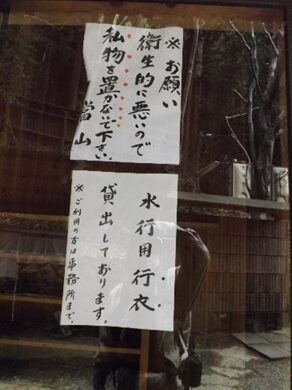 ※お願い
衛生的に悪いので
私物を置かないで下さい。
当山
水行用行衣
貸出しております。
※ご利用の方は事務所まで。